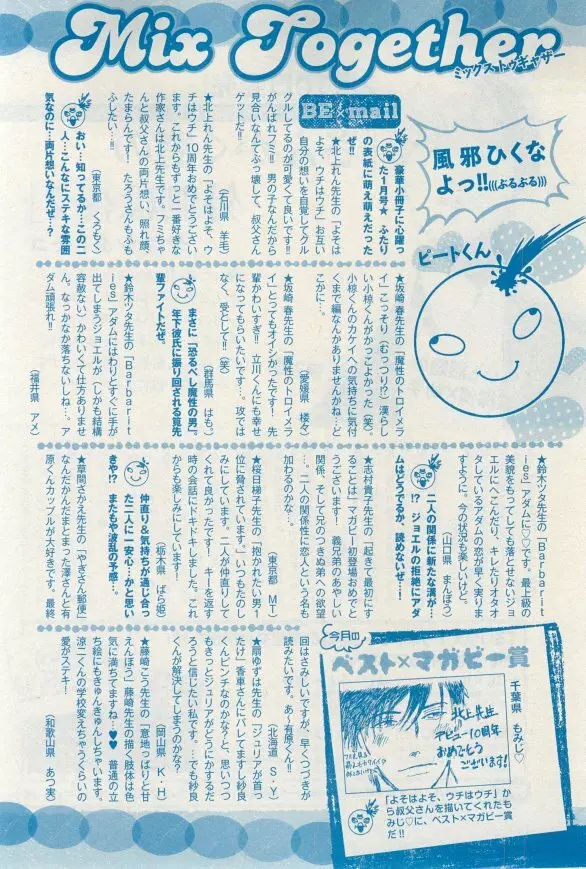 Mix Together
ミックス トゥギャザー
風邪ひくな
よっ!!(((ぶるぶる)))
ピートくん
BE×mail
豪華小冊子に心躍っ
た1月号★ ふたり
の表紙に萌え萌えだった
ぜ!!
★北上れん先生の「よそは
よそ、ウチはウチ」お互い
自分の想いを自覚してグル
グルしてるのが可愛くて良いです!!
がんばれフミ!! 男の子なんだから
見合いなんてぶっ壊して、叔父さん
ゲットだ!!
(石川県 羊毛)
★北上れん先生の「よそはよそ、ウ
チはウチ」10周年おめでとうござい
ます。これからもずっと一番好きな
作家さんは北上先生です。フミちゃ
んと叔父さんの両片想い、照れ顔、
たまらんです! たろうさんもふも
ふしたい…!!
(東京都 くろもく)
おい…知ってるか…この二
人…こんなにステキな雰囲
気なのに…両片想いなんだぜ…?
★坂崎春先生の「魔性のトロイメラ
イ」こっそり(むっつり!?)漢らし
い小椋くんがかっこよかった(笑)。
小椋くんのカケイへの気持ちに気付
くまで編なんかありませんかね…ど
こかに…。
(愛媛県 楼々)
★坂崎春先生の「魔性のトロイメラ
イ」とってもオイシかったです! 先
輩かわいすぎ!! 立川くんにも幸せ
になってもらいたいです…。攻では
なく、受として!!(笑)
(群馬県 はも。)
まさに「恐るべし魔性の男」
年下彼氏に振り回される筧先
輩ファイトだぜ。
★鈴木ツタ先生の「Barbarit
ies」アダムにはわりとすぐに手が
出てしまうジョエルが(しかも結構
容赦ない)かわいくて仕方ありませ
ん。なっかなか落ちないしね…。ア
ダム頑張れ!!
(福井県 アメ)
★鈴木ツタ先生の「Barbarit
ies」アダムに♡♡です。最上級の
美貌をもってしても落とせないジョ
エルにへこんだり、キレたりオタオ
タしているアダムの恋が早く実りま
すように。今の状況も楽しいけど。
(山口県 まんぼう)
二人の関係に新たな溝が…
!? ジョエルの拒絶にアダ
ムはどうでるか、読めないぜ…!
★志村貴子先生の「起きて最初にす
ることは」マガビー初登場おめでと
うございます! 義兄弟のあやしい
関係、そして兄のつきぬ弟への欲望
…。二人の関係性に恋人という名も
加わるのかな…。
(東京都 MT)
★桜日梯子先生の「抱かれたい男1
位に脅されています。」いつもたのし
みにしています。二人が仲直りして
くれて良かったです! キーを返す
時の会話にドキドキしました。これ
からも楽しみにしています!
(栃木県 ばら姫)
仲直り&気持ちが通じ合っ
た二人に一安心…かと思い
きや!? またもや波乱の予感…。
★草間さかえ先生の「やぎさん郵便」
なんだかんだまとまった澤さんと有
原くんカップルが大好きです。最終
回はさみしいですが、早くつづきが
読みたいです。あ〜有原くん!!
(北海道 S・Y)
★扇ゆずは先生の「ジュリアが首っ
たけ」香車さんにバレてますし紗良
くんピンチなのかな?と、思いつつ
もきっとジュリアがどうにかするだ
ろうと信じたい私です。…でも紗良
くんが解決してしまうのかな?
(岡山県 K・H)
★藤崎こう先生の「意地っぱりと甘
えんぼう」藤崎先生の描く肢体は色
気に満ちてますね…♥♥ 普通の立
ち絵にもきゅんきゅんしちゃいます。
涼二くんの学校変えちゃうくらいの
愛がステキ!
(和歌山県 あつ実)
今月の
ベスト×マガビー賞
千葉県 もみじ♡
北上先生
デビュー10周年
おめでとう
ございます!
「よそはよそ、ウチはウチ」か
ら叔父さんを描いてくれたも
みじ♡に、ベスト×マガビー賞
だ!!